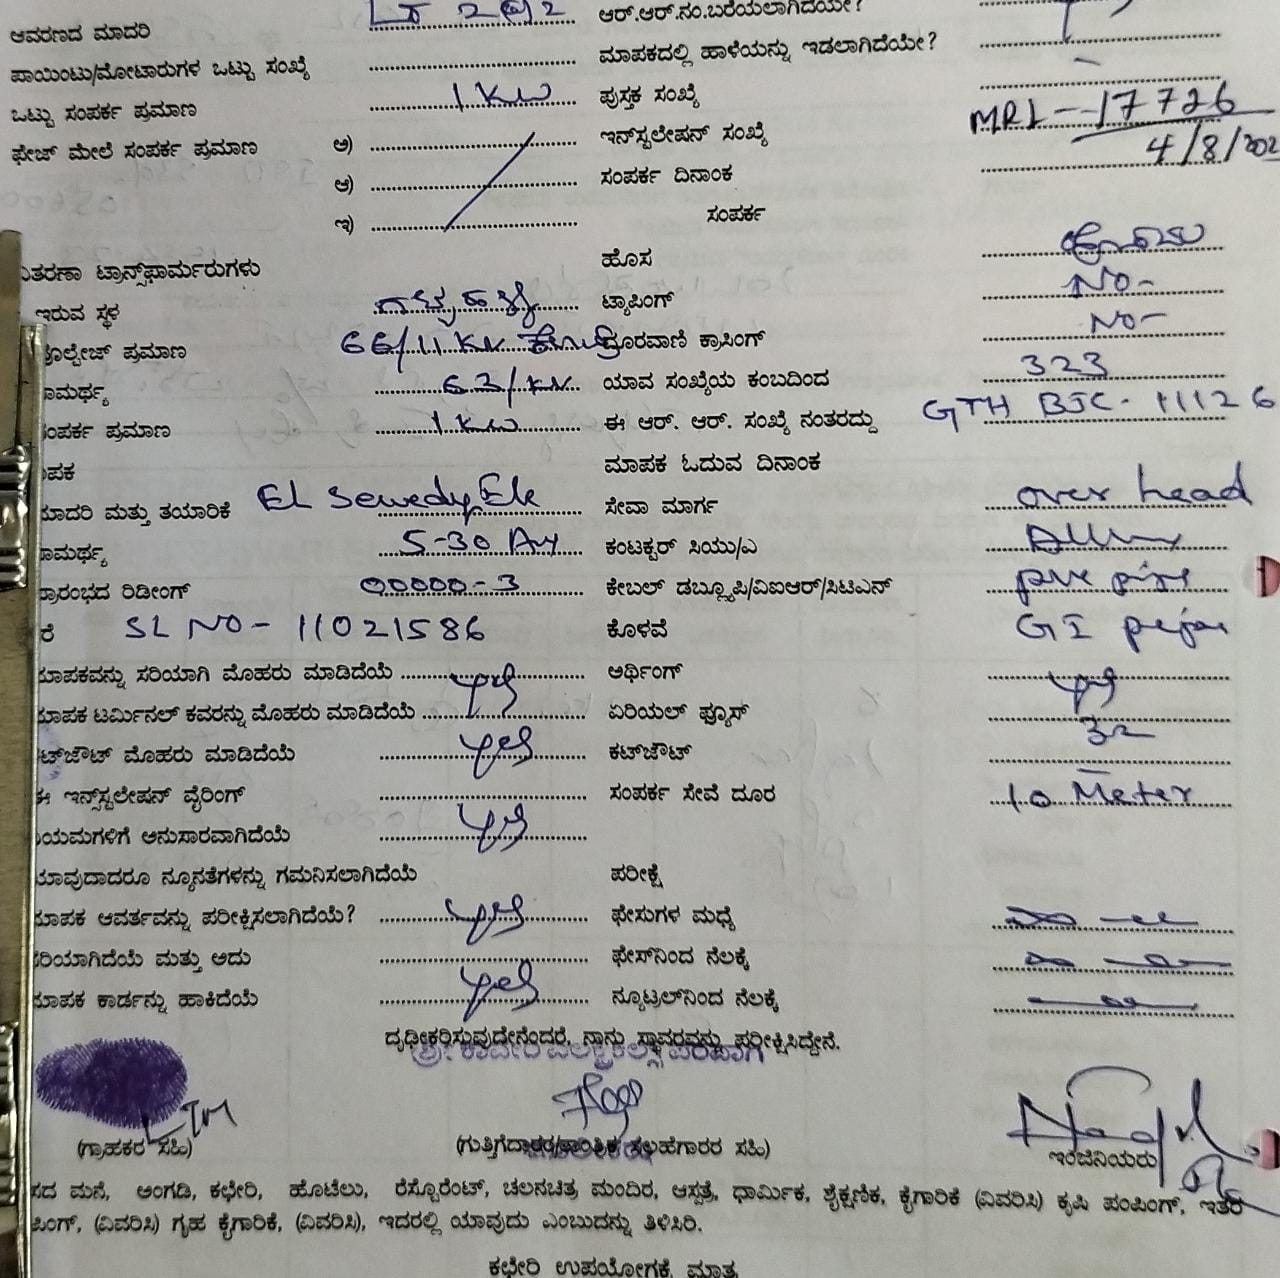 ಆವರಣದ ಮಾದರಿ LT 2 ಆರ್.ಆರ್.ನಂ.ಬರೆಯಲಾಗಿದೆಯೇ?
ಪಾಯಿಂಟು/ಮೋಟಾರುಗಳ ಒಟ್ಟು ಸಂಖ್ಯೆ ಮಾಪಕದಲ್ಲಿ ಹಾಳೆಯನ್ನು ಇಡಲಾಗಿದೆಯೇ?
ಒಟ್ಟು ಸಂಪರ್ಕ ಪ್ರಮಾಣ 1 KW ಪುಸ್ತಕ ಸಂಖ್ಯೆ
ಫೇಜ್ ಮೇಲೆ ಸಂಪರ್ಕ ಪ್ರಮಾಣ ಅ) ಇನ್‌ಸ್ಟಲೇಷನ್ ಸಂಖ್ಯೆ MR1-17726
ಆ) ಸಂಪರ್ಕ ದಿನಾಂಕ 4/8/202
ಇ) ಸಂಪರ್ಕ
ತರಣಾ ಟ್ರಾನ್ಸ್‌ಫಾರ್ಮರುಗಳು ಹೊಸ
ಇರುವ ಸ್ಥಳ ಟ್ಯಾಪಿಂಗ್ NO-
ೋಲ್ಟೇಜ್ ಪ್ರಮಾಣ 66/11 KV ದೂರವಾಣಿ ಕ್ರಾಸಿಂಗ್ NO-
ಾಮರ್ಥ್ಯ 63/KV ಯಾವ ಸಂಖ್ಯೆಯ ಕಂಬದಿಂದ 323
ಸಂಪರ್ಕ ಪ್ರಮಾಣ 1 KW ಈ ಆರ್. ಆರ್. ಸಂಖ್ಯೆ ನಂತರದ್ದು GTH BJC-11126
ಾಪಕ ಮಾಪಕ ಓದುವ ದಿನಾಂಕ
ಮಾದರಿ ಮತ್ತು ತಯಾರಿಕೆ El Sewedy Ele ಸೇವಾ ಮಾರ್ಗ over head
ಾಮರ್ಥ್ಯ 5-30 ಕಂಟಕ್ಟರ್ ಸಿಯು/ಎ
ಪ್ರಾರಂಭದ ರಿಡೀಂಗ್ 00000-3 ಕೇಬಲ್ ಡಬ್ಲ್ಯೂಪಿ/ವಿಐಆರ್/ಸಿಟಿಎಸ್
ರೆ SL NO-11021586 ಕೊಳವೆ GI
ಮಾಪಕವನ್ನು ಸರಿಯಾಗಿ ಮೊಹರು ಮಾಡಿದೆಯೆ ಅರ್ಥಿಂಗ್
ಮಾಪಕ ಟರ್ಮಿನಲ್ ಕವರನ್ನು ಮೊಹರು ಮಾಡಿದೆಯೆ yes ಏರಿಯಲ್ ಫ್ಯೂಸ್ yes
ಕಟ್‌ಔಟ್ ಮೊಹರು ಮಾಡಿದೆಯೆ yes ಕಟ್‌ಔಟ್ 32
ಈ ಇನ್ಸ್‌ಸ್ಟಲೇಷನ್ ವೈರಿಂಗ್ ಸಂಪರ್ಕ ಸೇವೆ ದೂರ 10 Meter
ನಿಯಮಗಳಿಗೆ ಅನುಸಾರವಾಗಿದೆಯೆ yes
ಯಾವುದಾದರೂ ನ್ಯೂನತೆಗಳನ್ನು ಗಮನಿಸಲಾಗಿದೆಯೆ ಪರೀಕ್ಷೆ
ಮಾಪಕ ಆವರ್ತವನ್ನು ಪರೀಕ್ಷಿಸಲಾಗಿದೆಯೆ? yes ಫೇಸುಗಳ ಮಧ್ಯೆ
ಸರಿಯಾಗಿದೆಯೆ ಮತ್ತು ಅದು ಫೇಸ್‌ನಿಂದ ನೆಲಕ್ಕೆ
ಮಾಪಕ ಕಾರ್ಡನ್ನು ಹಾಕಿದೆಯೆ yes ನ್ಯೂಟ್ರಲ್‌ನಿಂದ ನೆಲಕ್ಕೆ
ದೃಢೀಕರಿಸುವುದೇನೆಂದರೆ, ನಾನು ಸ್ಥಾವರವನ್ನು ಪರೀಕ್ಷಿಸಿದ್ದೇನೆ.
LTM
(ಗ್ರಾಹಕರ ಸಹಿ) (ಗುತ್ತಿಗೆದಾರರ/ತಾಂತ್ರಿಕ ಸಲಹೆಗಾರರ ಸಹಿ) ಇಂಜಿನಿಯರು
ಸದ ಮನೆ, ಅಂಗಡಿ, ಕಛೇರಿ, ಹೊಟೆಲು, ರೆಸ್ಟೊರೆಂಟ್, ಚಲನಚಿತ್ರ ಮಂದಿರ, ಆಸ್ಪತ್ರೆ, ಧಾರ್ಮಿಕ, ಶೈಕ್ಷಣಿಕ, ಕೈಗಾರಿಕೆ (ವಿವರಿಸಿ) ಕೃಷಿ ಪಂಪಿಂಗ್, ಇತರೆ
ಪಿಂಗ್, (ವಿವರಿಸಿ) ಗೃಹ ಕೈಗಾರಿಕೆ, (ವಿವರಿಸಿ), ಇದರಲ್ಲಿ ಯಾವುದು ಎಂಬುದನ್ನು ತಿಳಿಸಿರಿ.
ಕಛೇರಿ ಉಪಯೋಗಕ್ಕೆ ಮಾತ್ರ